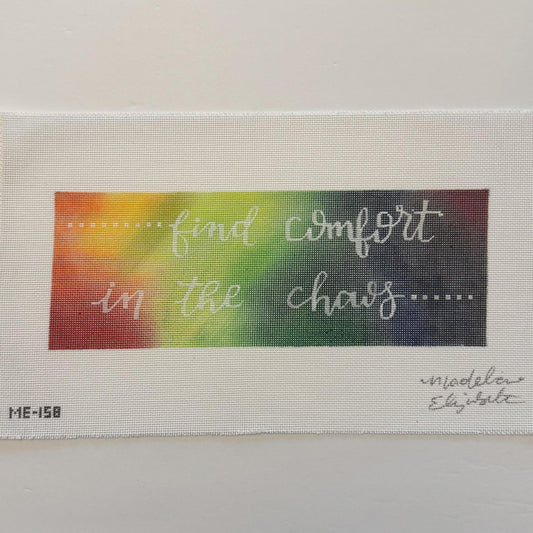 find comfort
in the chaos
Madeline
Elizabeth
ME-158